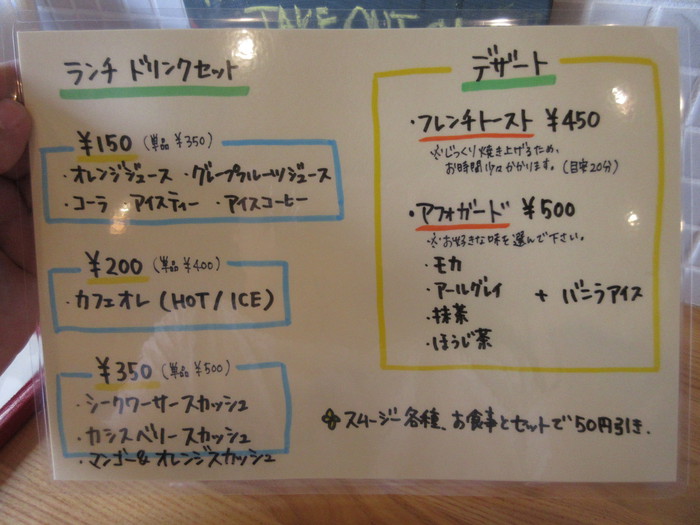 TAKE OUT
ランチ ドリンクセット
¥150 (単品 ¥350)
・オレンジジュース ・グレープフルーツジュース
・コーラ ・アイスティー ・アイスコーヒー
¥200 (単品 ¥400)
・カフェオレ (HOT / ICE)
¥350 (単品 ¥500)
・シークワーサースカッシュ
・カシスベリースカッシュ
・マンゴー&オレンジスカッシュ
デザート
・フレンチトースト ¥450
※じっくり焼き上げるため、
お時間少々かかります。(目安20分)
・アフォガード ¥500
※お好きな味を選んで下さい。
・モカ
・アールグレイ + バニラアイス
・抹茶
・ほうじ茶
スムージー各種、お食事とセットで50円引き.